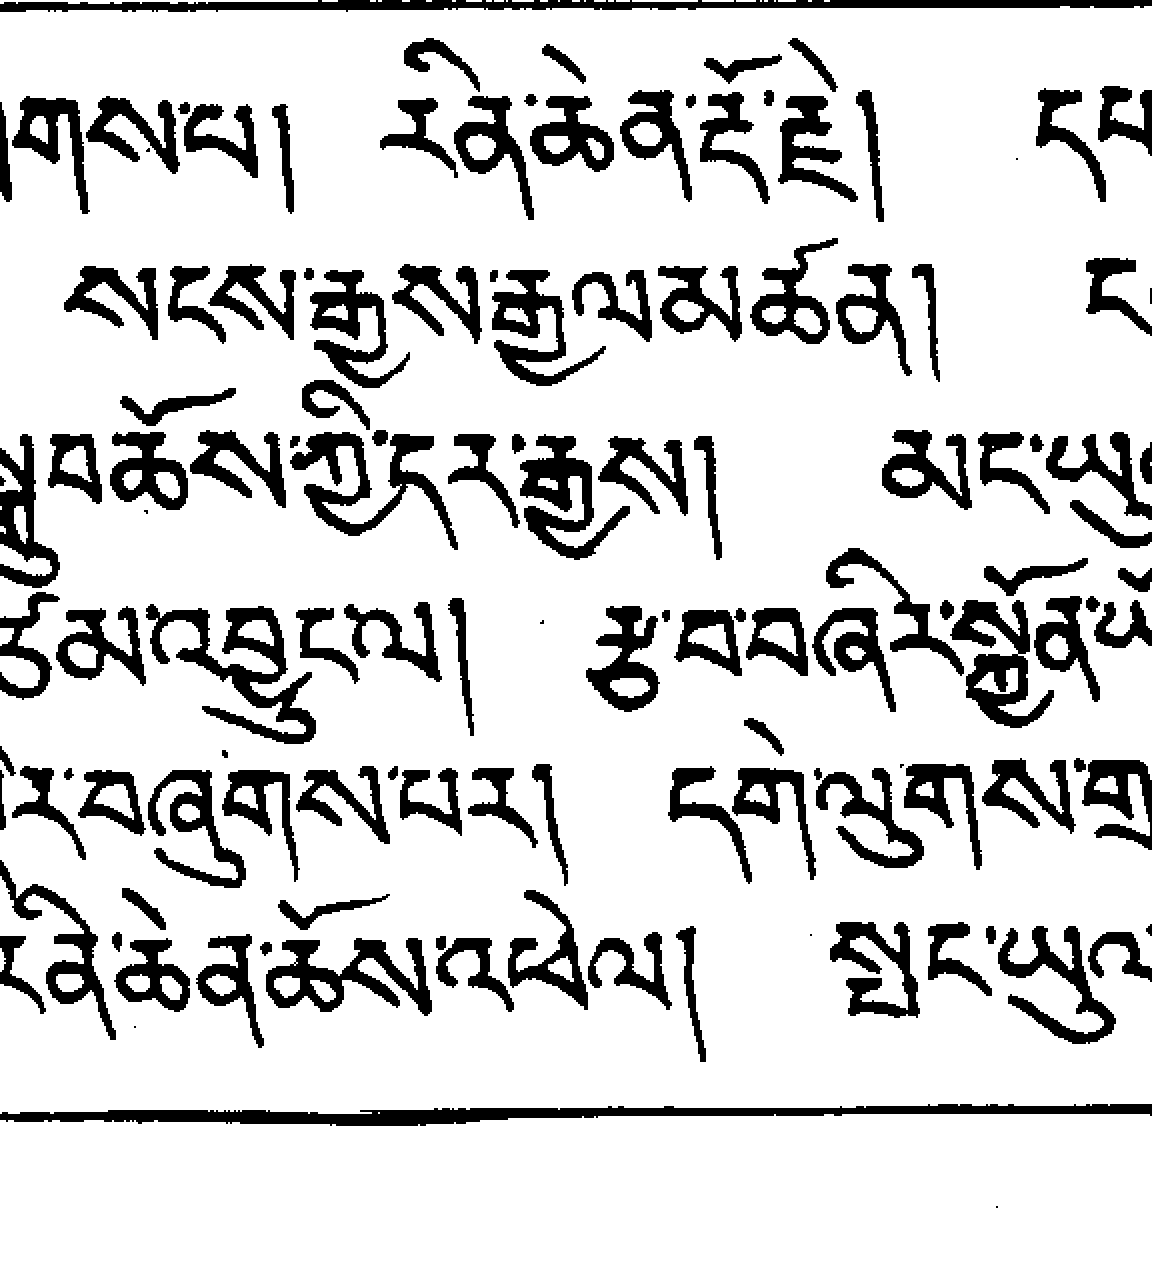 གས་པ། རིན་ཆེན་རྡོ་རྗེ། ད
སངས་རྒྱས་རྒྱལ་མཚན། ད
བ་ཆོས་ཀྱི་དར་རྒྱས། མང་ཡུ
མ་འབྱུང་ལ། རྩ་བ་བཞིར་སྐྱོན་
ར་བཞུགས་པར། དགེ་ལུགས་གྲ
རིན་ཆེན་ཆོས་འཕེལ། སྤང་ཡུལ